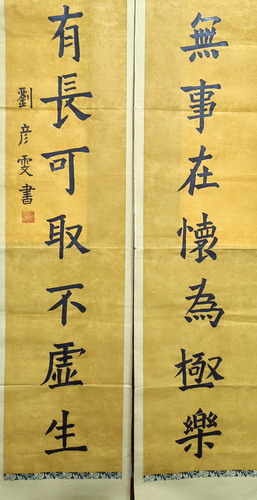 無事在懷為極樂
有長可取不虛生
劉彥雯書